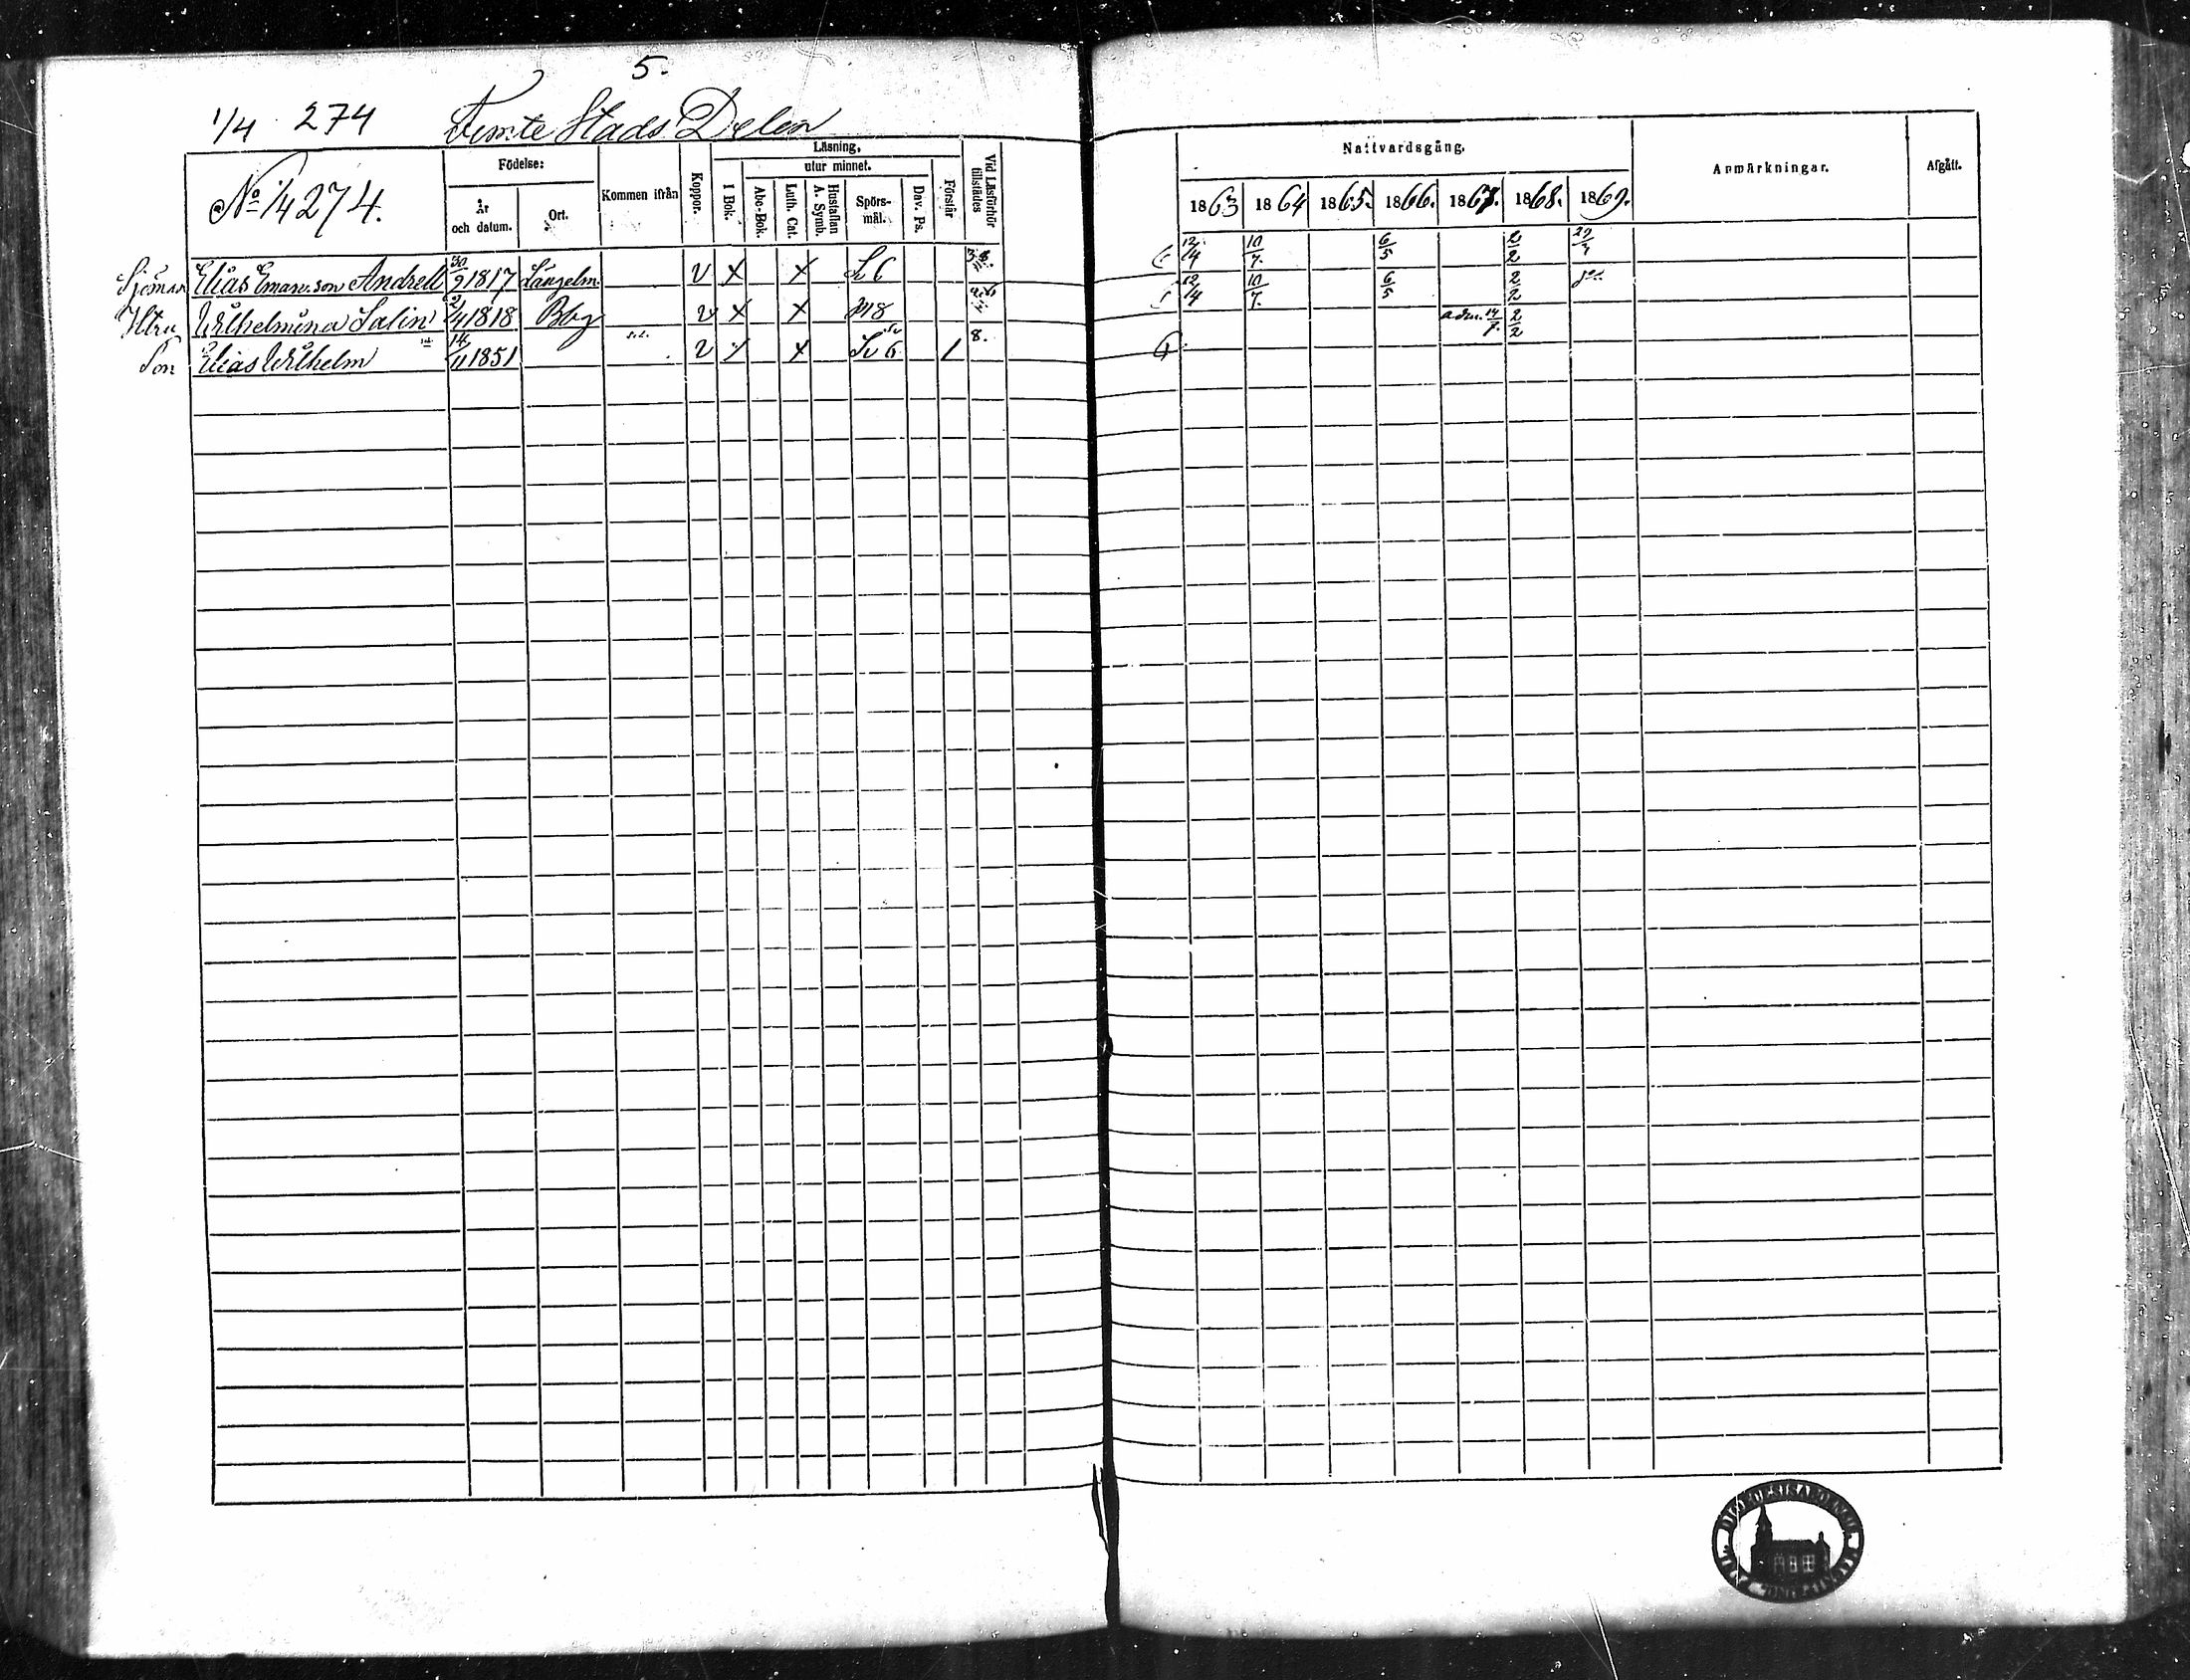 5.
1/4 274 Femte Stads Delen
No 1/4 274.
Födelse:
År och datum.
Ort.
Kommen ifrån
Koppor.
Läsning,
I Bok.
utur minnet.
Abc-Bok.
Luth. Cat.
Hustaflan A. Symb.
Spörs-mål.
Dav. Ps.
Förstår
Vid Läsförhör tillstädes
Nattvardsgång.
1863 1864 1865. 1866. 1867. 1868. 1869.
Anmärkningar.
Afgått.
Sjöman Elias Eman.son Andrell 30/9 1817 Längelm. v X X Sv 6 12/14 10/7. 6/5 2/2
Hstru Wilhelmina Salin 2/4 1818 Bbg v X X 12/14 10/7. 6/5 2/2
Son Elias Wilhelm 14/11 1851 v X Sv 6 / 8. adm. 14/7. 2/2